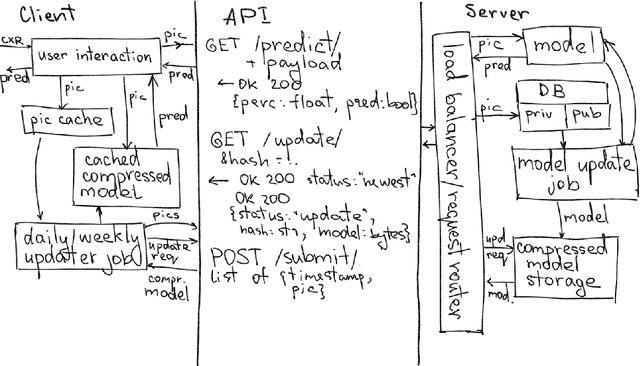 Client
CXR
pred
user interaction
pic
pred
pic
pic
pred
pic cache
cached
compressed
model
daily/weekly
updater job
pics
update
req
compr.
model
API
GET /predict/
+ payload
← OK 200
{perc: float, pred: bool}
GET /update/
&hash =...
← OK 200 status: "newest"
OK 200
{status: "update",
hash: str, model: bytes}
POST /submit/
list of {timestamp,
pic}
Server
load balancer/request router
pic
pred
model
pic
DB
priv
pub
model update
job
model
upd
req
mod.
compressed
model
storage